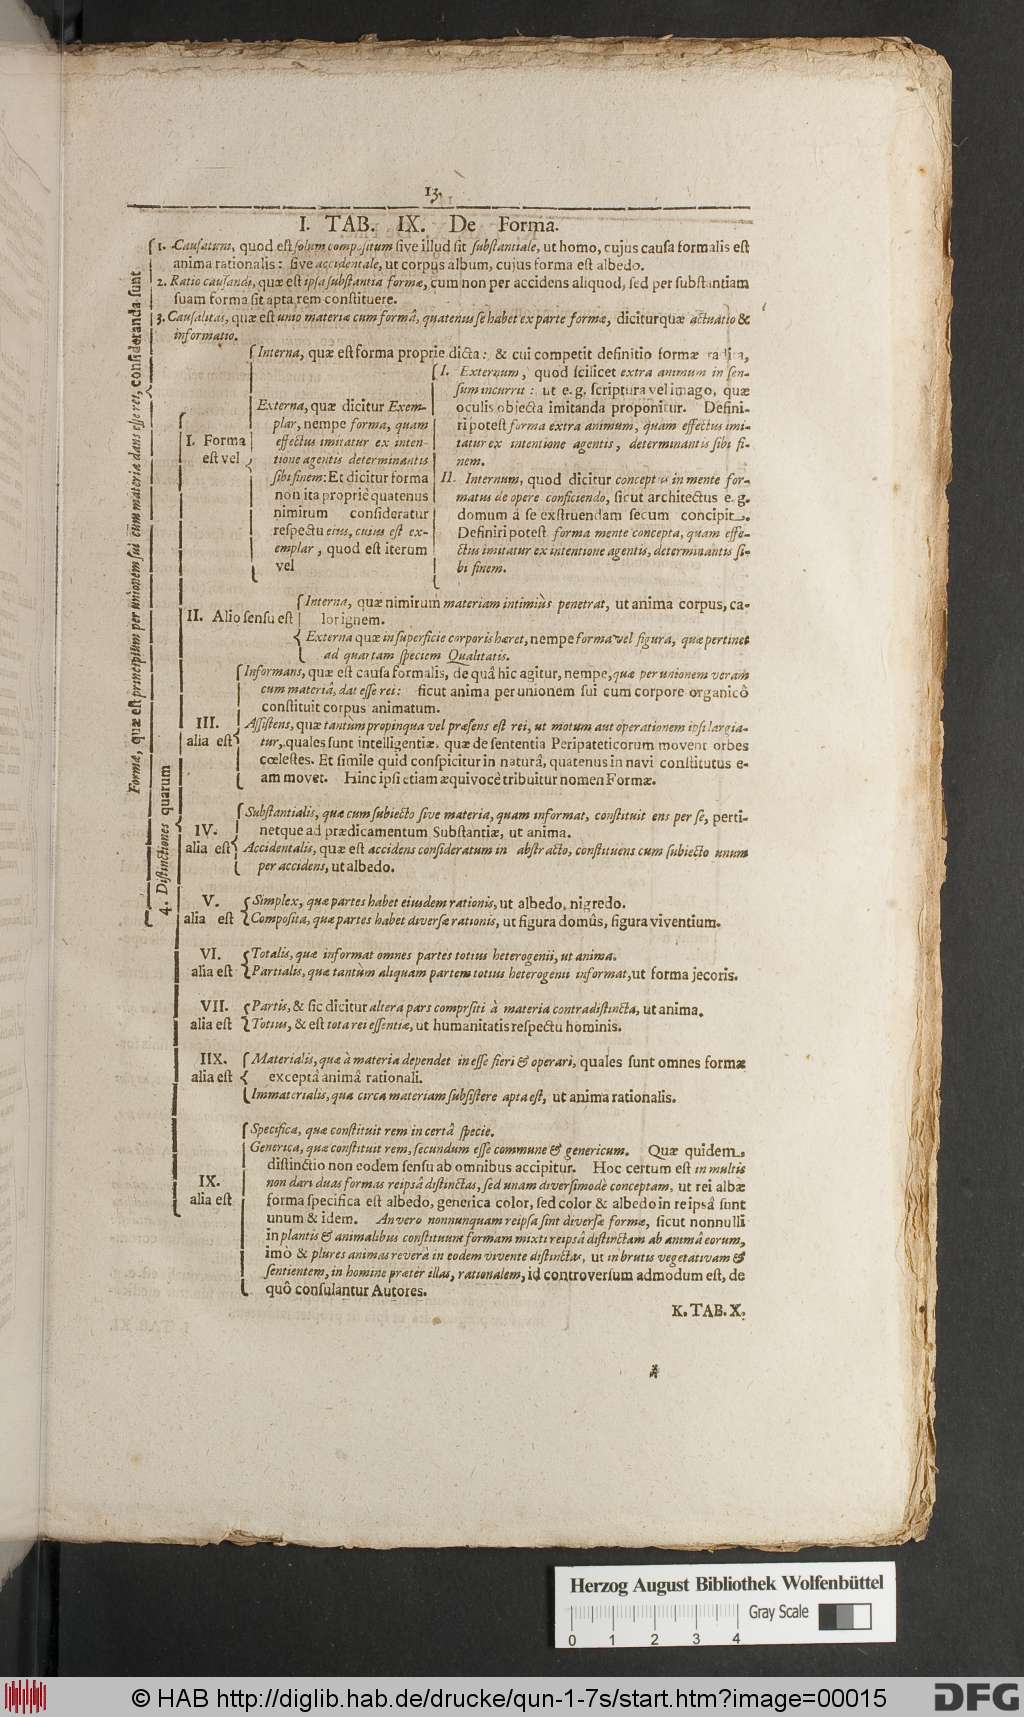 13.
I. TAB. IX. De Forma.
Formæ, quæ est principium per unionem sui cum materiâ dans esse rei, consideranda sunt
1. Causatum, quod est solum compositum sive illud sit substantiale, ut homo, cujus causa formalis est
anima rationalis: sive accidentale, ut corpus album, cujus forma est albedo.
2. Ratio causandi, quæ est ipsa substantia formæ, cum non per accidens aliquod, sed per substantiam
suam forma sit apta rem constituere.
3. Causalitas, quæ est unio materiæ cum formâ, quatenus se habet ex parte formæ, diciturquæ actuatio &
informatio.
4. Distinctiones quarum
I. Forma
est vel
Interna, quæ est forma proprie dicta: & cui competit definitio formæ tradita,
Externa, quæ dicitur Exem-
plar, nempe forma, quam
effectus imitatur ex inten-
tione agentis determinantis
sibi finem: Et dicitur forma
non ita propriè quatenus
nimirum consideratur
respectu eius, cuius est ex-
emplar, quod est iterum
vel
I. Externum, quod scilicet extra animum in sen-
sum incurrit: ut e. g. scriptura vel imago, quæ
oculis objecta imitanda proponitur. Defini-
ri potest forma extra animum, quam effectus imi-
tatur ex intentione agentis, determinantis sibi fi-
nem.
II. Internum, quod dicitur conceptus in mente for-
matus de opere conficiendo, sicut architectus e. g.
domum á se exstruendam secum concipit.
Definiri potest forma mente concepta, quam effe-
ctus imitatur ex intentione agentis, determinantis si-
bi finem.
II. Alio sensu est
Interna, quæ nimirum materiam intimiùs penetrat, ut anima corpus, ca-
lor ignem.
Externa quæ in superficie corporis hæret, nempe forma vel figura, quæ pertinet
ad quartam speciem Qualitatis.
III.
alia est
Informans, quæ est causa formalis, de quâ hic agitur, nempe, quæ per unionem veram
cum materiâ, dat esse rei: sicut anima per unionem sui cum corpore organicô
constituit corpus animatum.
Assistens, quæ tantùm propinqua vel præsens est rei, ut motum aut operationem ipsi largia-
tur, quales sunt intelligentiæ, quæ de sententia Peripateticorum movent orbes
cœlestes. Et simile quid conspicitur in naturâ, quatenus in navi constitutus e-
am movet. Hinc ipsi etiam æquivocè tribuitur nomen Formæ.
IV.
alia est
Substantialis, quæ cum subiecto sive materia, quam informat, constituit ens per se, perti-
netque ad prædicamentum Substantiæ, ut anima.
Accidentalis, quæ est accidens consideratum in abstracto, constituens cum subiecto unum
per accidens, ut albedo.
V.
alia est
Simplex, quæ partes habet eiusdem rationis, ut albedo, nigredo.
Composita, quæ partes habet diversæ rationis, ut figura domûs, figura viventium.
VI.
alia est
Totalis, quæ informat omnes partes totius heterogenii, ut anima.
Partialis, quæ tantùm aliquam partem totius heterogenii informat, ut forma jecoris.
VII.
alia est
Partis, & sic dicitur altera pars comprsiti à materia contradistincta, ut anima.
Totius, & est tota rei essentia, ut humanitatis respectu hominis.
IIX.
alia est
Materialis, quæ à materia dependet in esse fieri & operari, quales sunt omnes formæ
exceptâ animâ rationali.
Immaterialis, quæ circa materiam subsistere apta est, ut anima rationalis.
IX.
alia est
Specifica, quæ constituit rem in certâ specie.
Generica, quæ constituit rem, secundum esse commune & genericum. Quæ quidem
distinctio non eodem sensu ab omnibus accipitur. Hoc certum est in multis
non dari duas formas reipsâ distinctas, sed unam diversimodè conceptam, ut rei albæ
forma specifica est albedo, generica color, sed color & albedo in reipsâ sunt
unum & idem. An vero nonnunquam reipsa sint diversæ formæ, sicut nonnulli
in plantis & animalibus constituunt formam mixti reipsâ distinctam ab animâ eorum,
imò & plures animas reverâ in eodem vivente distinctas, ut in brutis vegetativam &
sentientem, in homine præter illas, rationalem, id controversum admodum est, de
quô consulantur Autores.
K. TAB. X.
Herzog August Bibliothek Wolfenbüttel
Gray Scale
0 1 2 3 4
© HAB http://diglib.hab.de/drucke/qun-1-7s/start.htm?image=00015
DFG